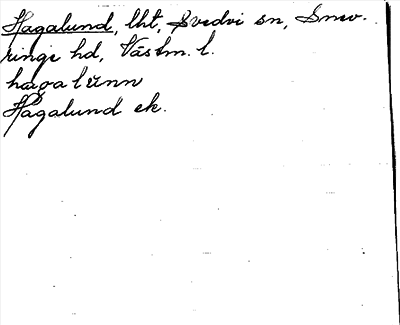 Hagalund, lht, Svedvi sn, Snev-
ringe hd, Västm. l.
hagalünn
Hagalund ek.